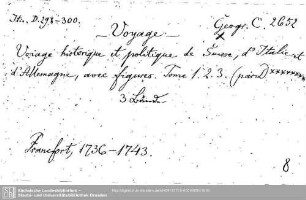 Itin. D. 298-300.
Geogr. C. 2652
- Voyage -
x
Voiage historique et politique de Suisse, d'Italie et
d'Allemagne, avec figures. Tome 1. 2. 3. (par D) xxxxxxx
3 Bände.
Francfort, 1736-1743.
8.
Sächsische Landesbibliothek -
Staats- und Universitätsbibliothek Dresden